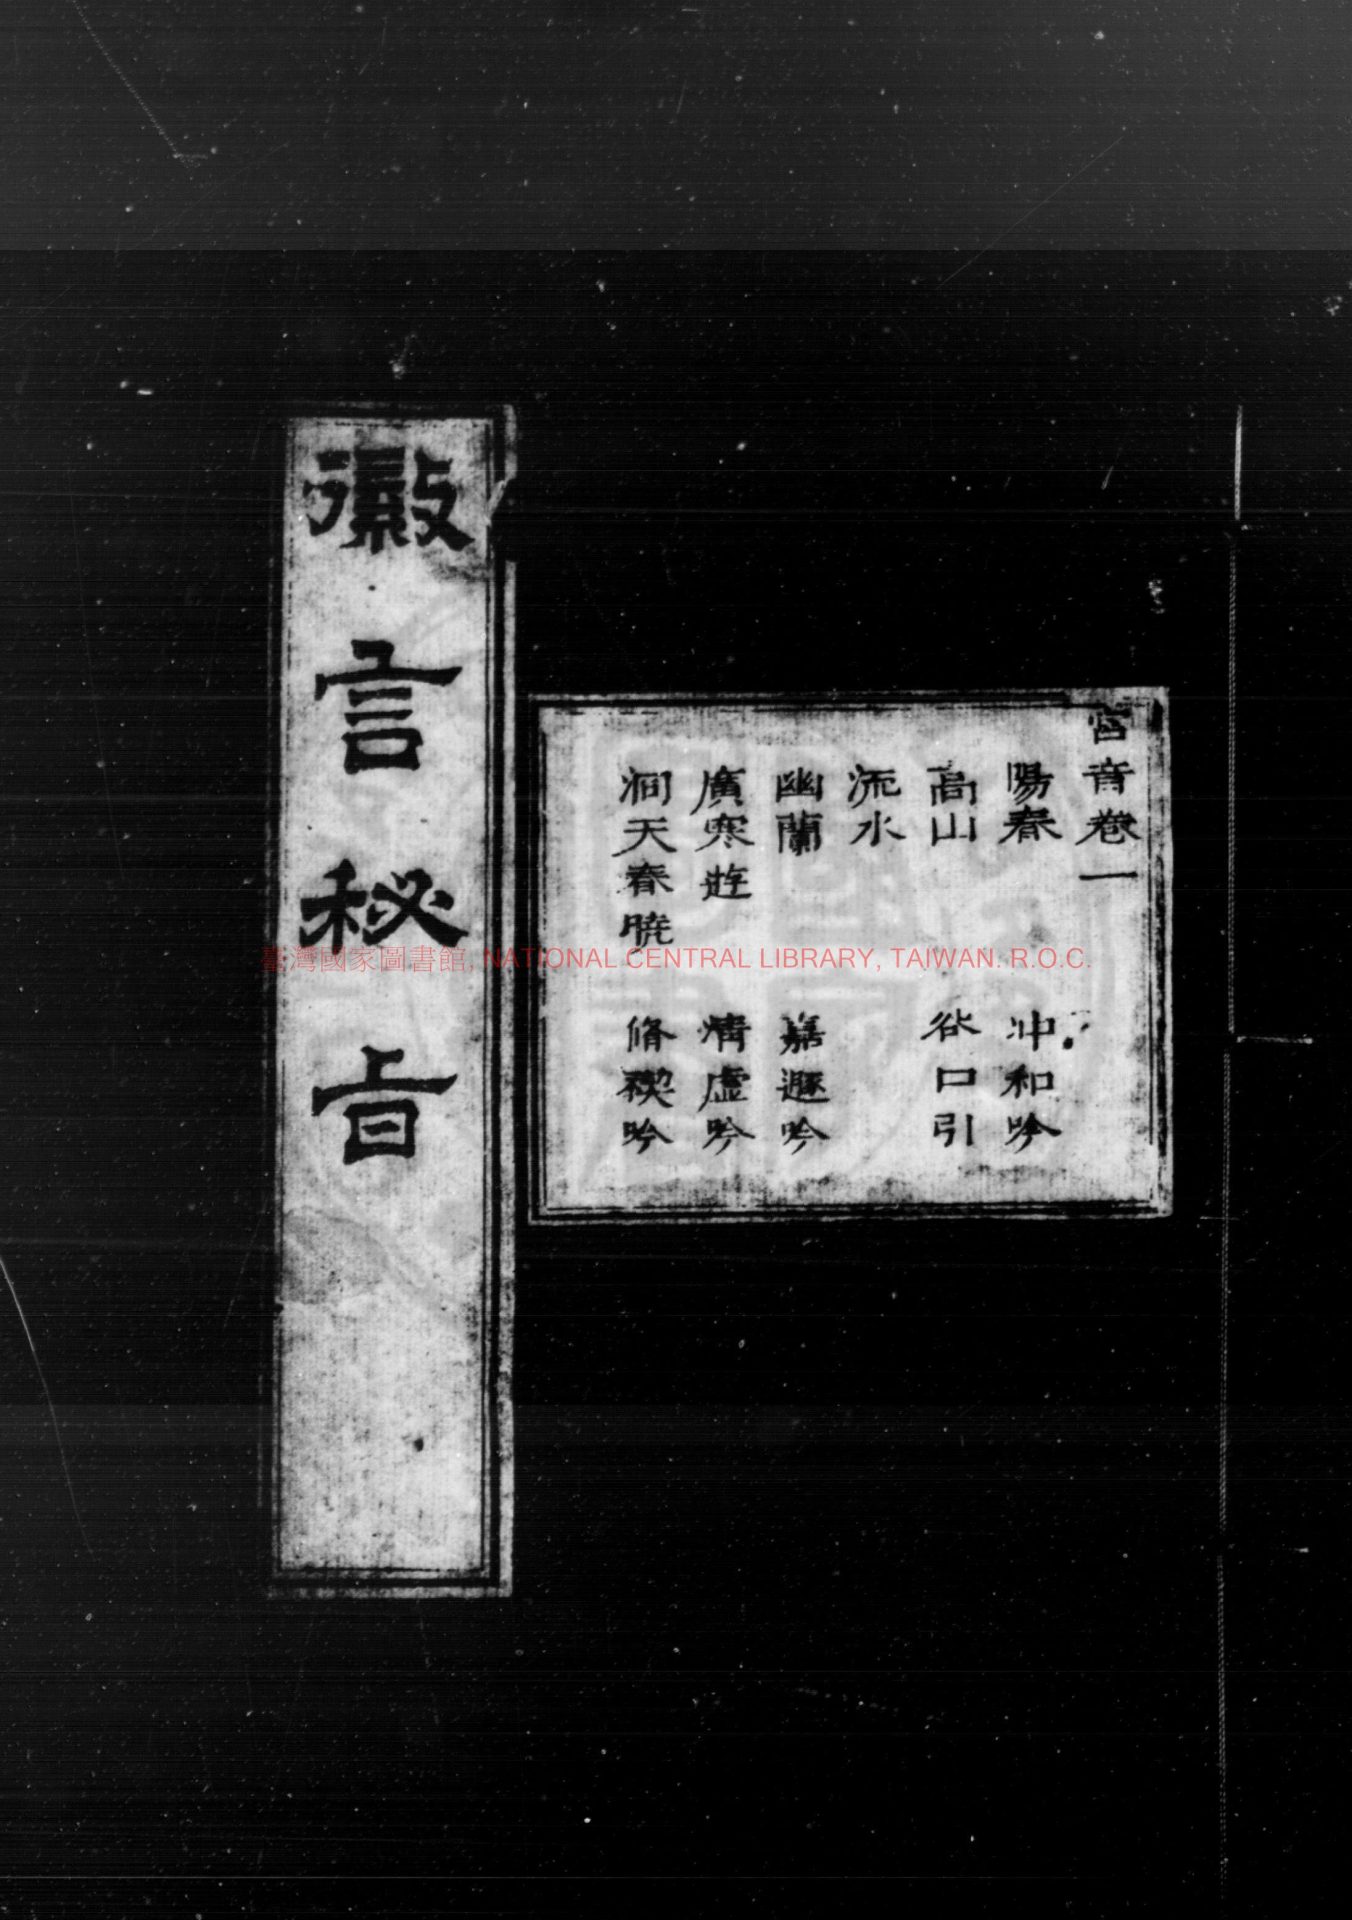 宮音卷一
陽春 冲和吟
高山 谷口引
流水
幽蘭 嘉遯吟
廣寒遊 清虛吟
洞天春曉 脩禊吟
徽言秘旨
臺灣國家圖書館, NATIONAL CENTRAL LIBRARY, TAIWAN. R.O.C.